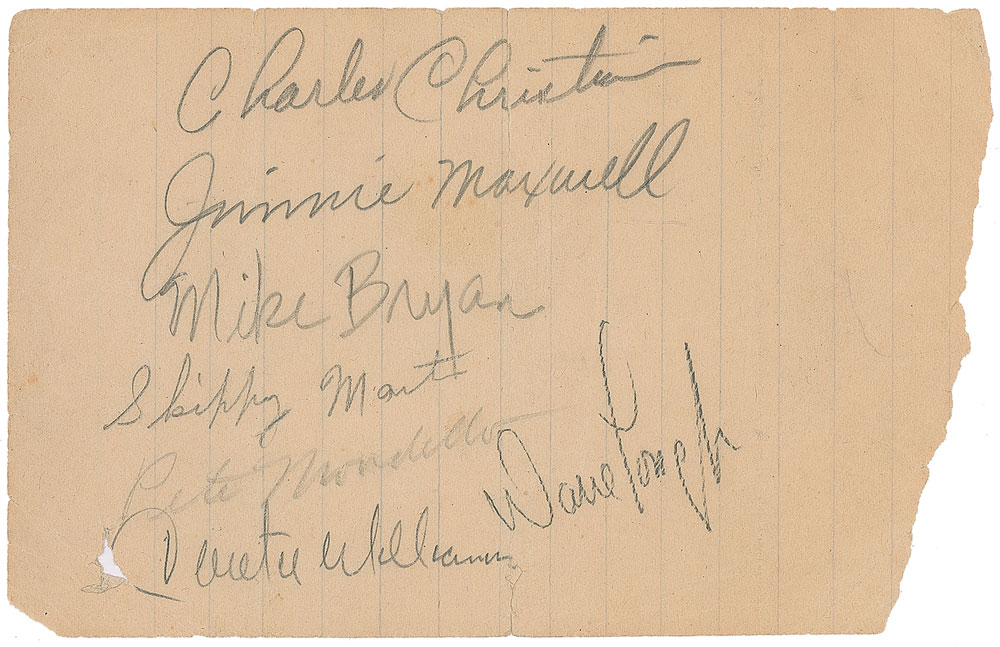 Charles Christian
Jimmie Maxwell
Mike Bryan
Skippy Martin
Pete Mondello
Dave Tough
Cootie Williams